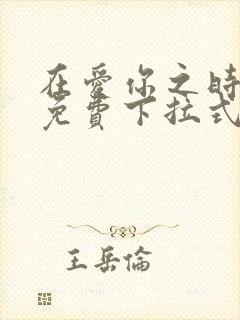 在愛你之時
免費下拉式
王岳倫